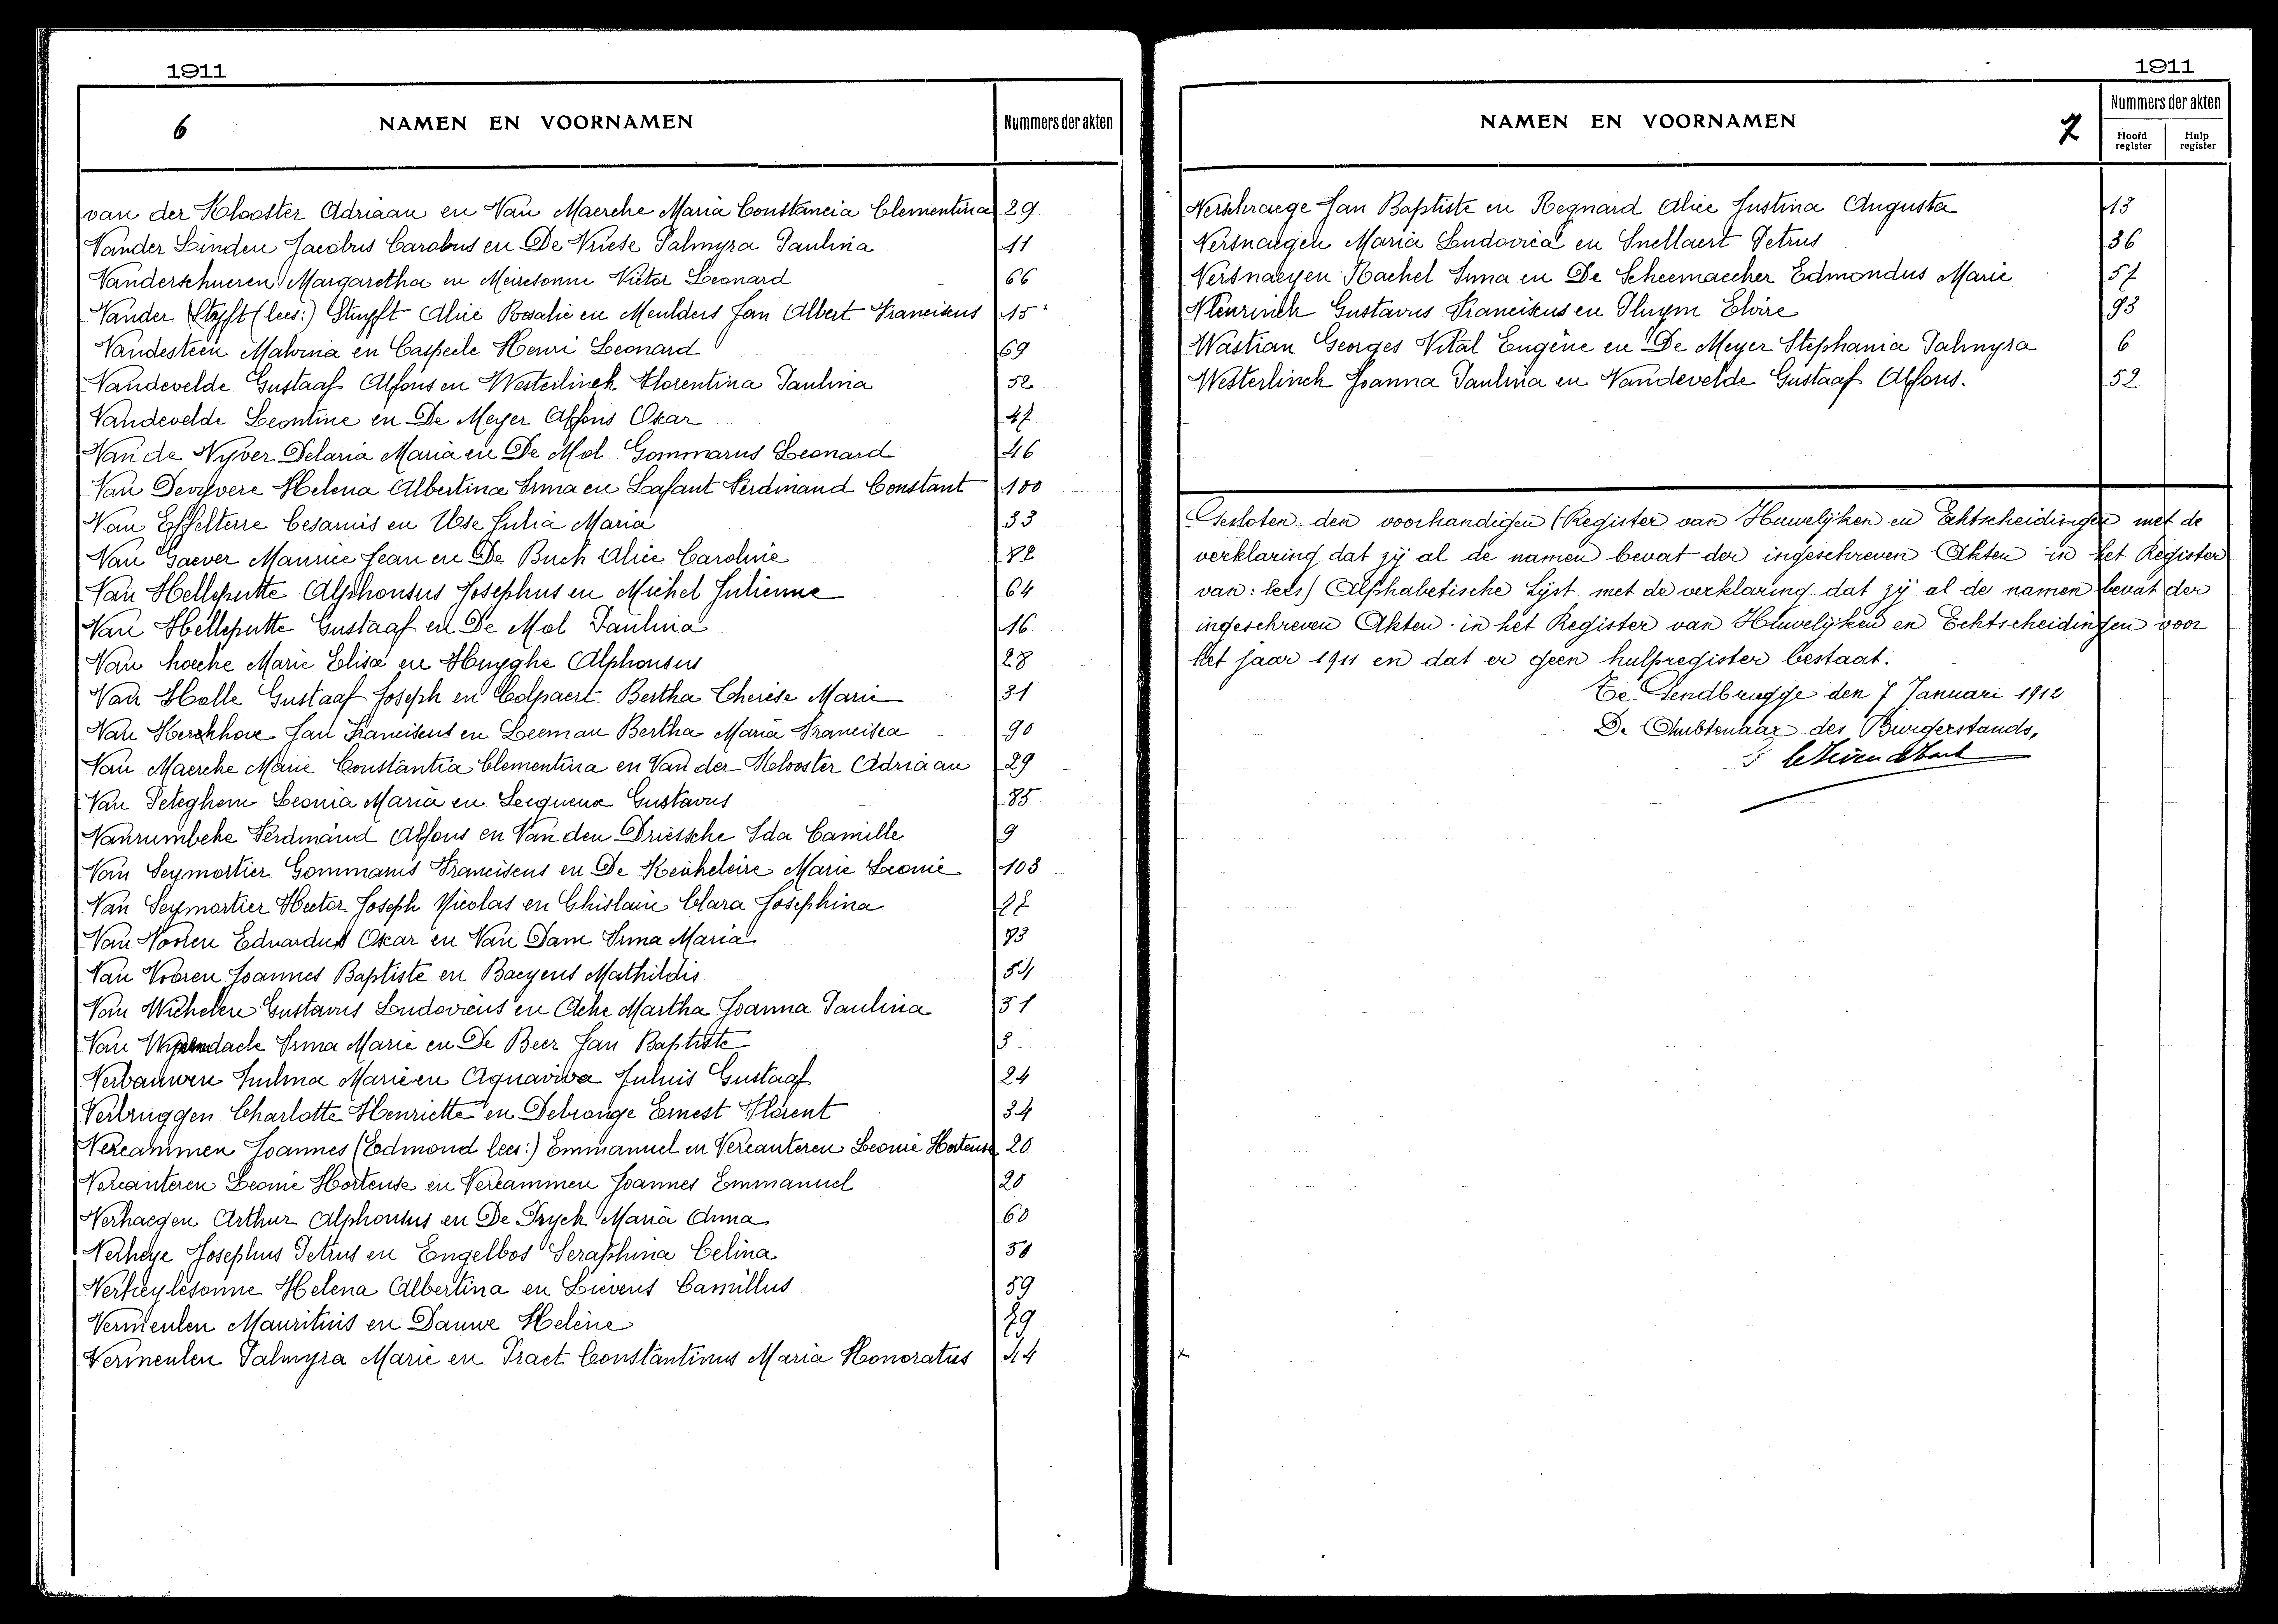 1911
6 NAMEN EN VOORNAMEN Nummers der akten
van der Klooster Adriaan en Van Maercke Maria Constancia Clementina 29
Vander Linden Jacobus Carolus en De Vriese Palmyra Paulina 11
Vanderschueren Margaretha en Meiresonne Victor Leonard 66
Vander Stuyft (lees:) Stuyft Alice Rosalie en Meulders Jan Albert Franciscus 15
Vandesteen Malvina en Casperle Henri Leonard 69
Vandevelde Gustaaf Alfons en Westerlinck Florentina Paulina 52
Vandevelde Leontine en De Meyer Alfons Oscar 47
Van de Vyver Pelaria Maria en De Mol Gommarus Leonard 46
Van Devyvere Helena Albertina Irma en Lafaut Ferdinand Constant 100
Van Effelterre Cesarius en Julia Maria 33
Van Gaever Maurice Jean en De Buck Alice Caroline
Van Helleputte Alphonsus Josephus en Michel Julienne 64
Van Helleputte Gustaaf en De Mol Paulina 16
Van hoecke Marie Elisa en Huyghe Alphonsus 28
Van Holle Gustaaf Joseph en Colpaert Bertha Therèse Marie 31
Van Kerckhove Jan Franciscus en Leeman Bertha Maria Francisca 90
Van Maercke Marie Constantia Clementina en Van der Klooster Adriaan 29
Van Peteghem Leonia Maria en Serquenx Gustavus 85
Vanrumbeke Ferdinand Alfons en Van den Driessche Ida Camille 9
Van Seymortier Gommarus Franciscus en De Keukeleire Marie Leonie 103
Van Seymortier Hector Joseph Nicolas en Ghislain Clara Josephina
Van Vooren Eduardus Oscar en Van Dam Irma Maria 93
Van Vooren Joannes Baptiste en Baeyens Mathildis 54
Van Wichelen Gustavus Ludovicus en Acke Martha Joanna Paulina 51
Van Irma Marie en De Beer Jan Baptiste 3
Verbauwen Juliana Marie en Aquaviva Julius Gustaaf 24
Verbruggen Charlotte Henriette en Debronge Ernest Florent 34
Vercammen Joannes (Edmond lees:) Emmanuel en Vercauteren Leonie Hortense 20
Vercauteren Leonie Hortense en Vercammen Joannes Emmanuel 20
Verhaegen Arthur Alphonsus en De Pryck Maria Anna 60
Verheye Josephus Petrus en Engelbos Seraphina Celina
Verheylesonne Helena Albertina en Lievens Camillus 59
Vermeulen Mauritius en Dauwe Helène
Vermeulen Palmyra Marie en Praet Constantinus Maria Honoratus 44
1911
NAMEN EN VOORNAMEN 7 Nummers der akten
Hoofd register Hulp register
Verschraege Jan Baptiste en Regnard Alice Justina Augusta 13
Versnaeyen Maria Ludovica en Snellaert Petrus 36
Versnaeyen Rachel Irma en De Scheemaecker Edmondus Marie 57
Vleurinck Gustavus Franciscus en Thuym Elvire 93
Wastian Georges Vital Eugène en De Meyer Stephania Palmyra 6
Westerlinck Joanna Paulina en Vandevelde Gustaaf Alfons. 52
Gesloten den voorhandigen (Register van Huwelijken en Echtscheidingen met de
verklaring dat zij al de namen bevat der ingeschreven Akten in het Register
van: lees) Alphabetische Lijst met de verklaring dat zij al de namen bevat der
ingeschreven Akten in het Register van Huwelijken en Echtscheidingen voor
het jaar 1911 en dat er geen hulpregister bestaat.
Te Gendbrugge den 7 Januari 1912
De Ambtenaar des Burgerstands,